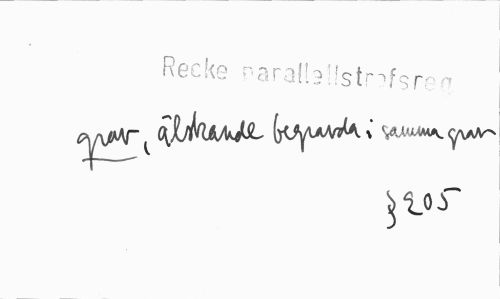 Recke parallellstrofsreg
grav, älskande begravda i samma grav
§ 205